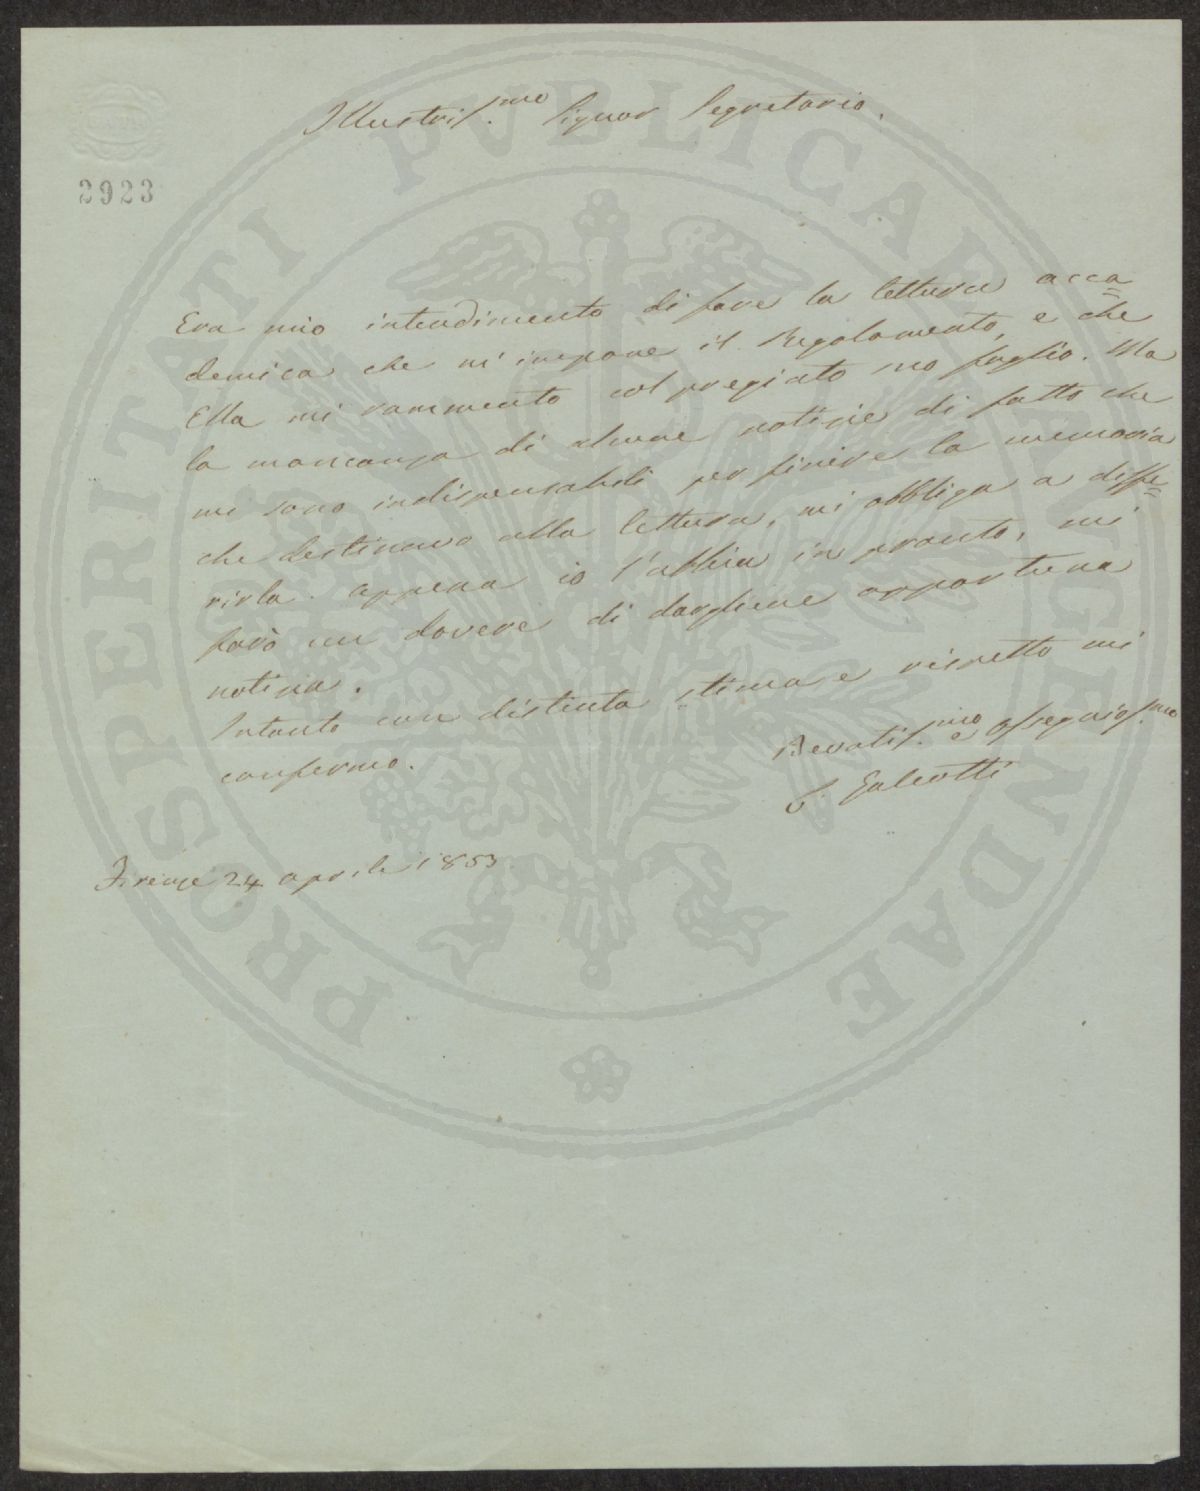 Illustris.mo Signor Segretario.
2923
Era mio intendimento di fare la lettura acca=
demica che m'impone il Regolamento, e che
Ella mi rammenta col pregiato suo foglio. Ma
la mancanza di alcune notizie di fatto che
mi sono indispensabili per finire la memoria
che destinavo alla lettura, mi obbliga a diffe=
rirla. Appena io l'abbia in pronto, mi
farò un dovere di dargliene opportuna
notizia.
Intanto con distinta stima e rispetto mi
confermo.
Devotis.mo e Ossequios.mo
L. Galeotti
Firenze 24 aprile 1853.
PROSPERITATI PUBLICAE AUGENDAE